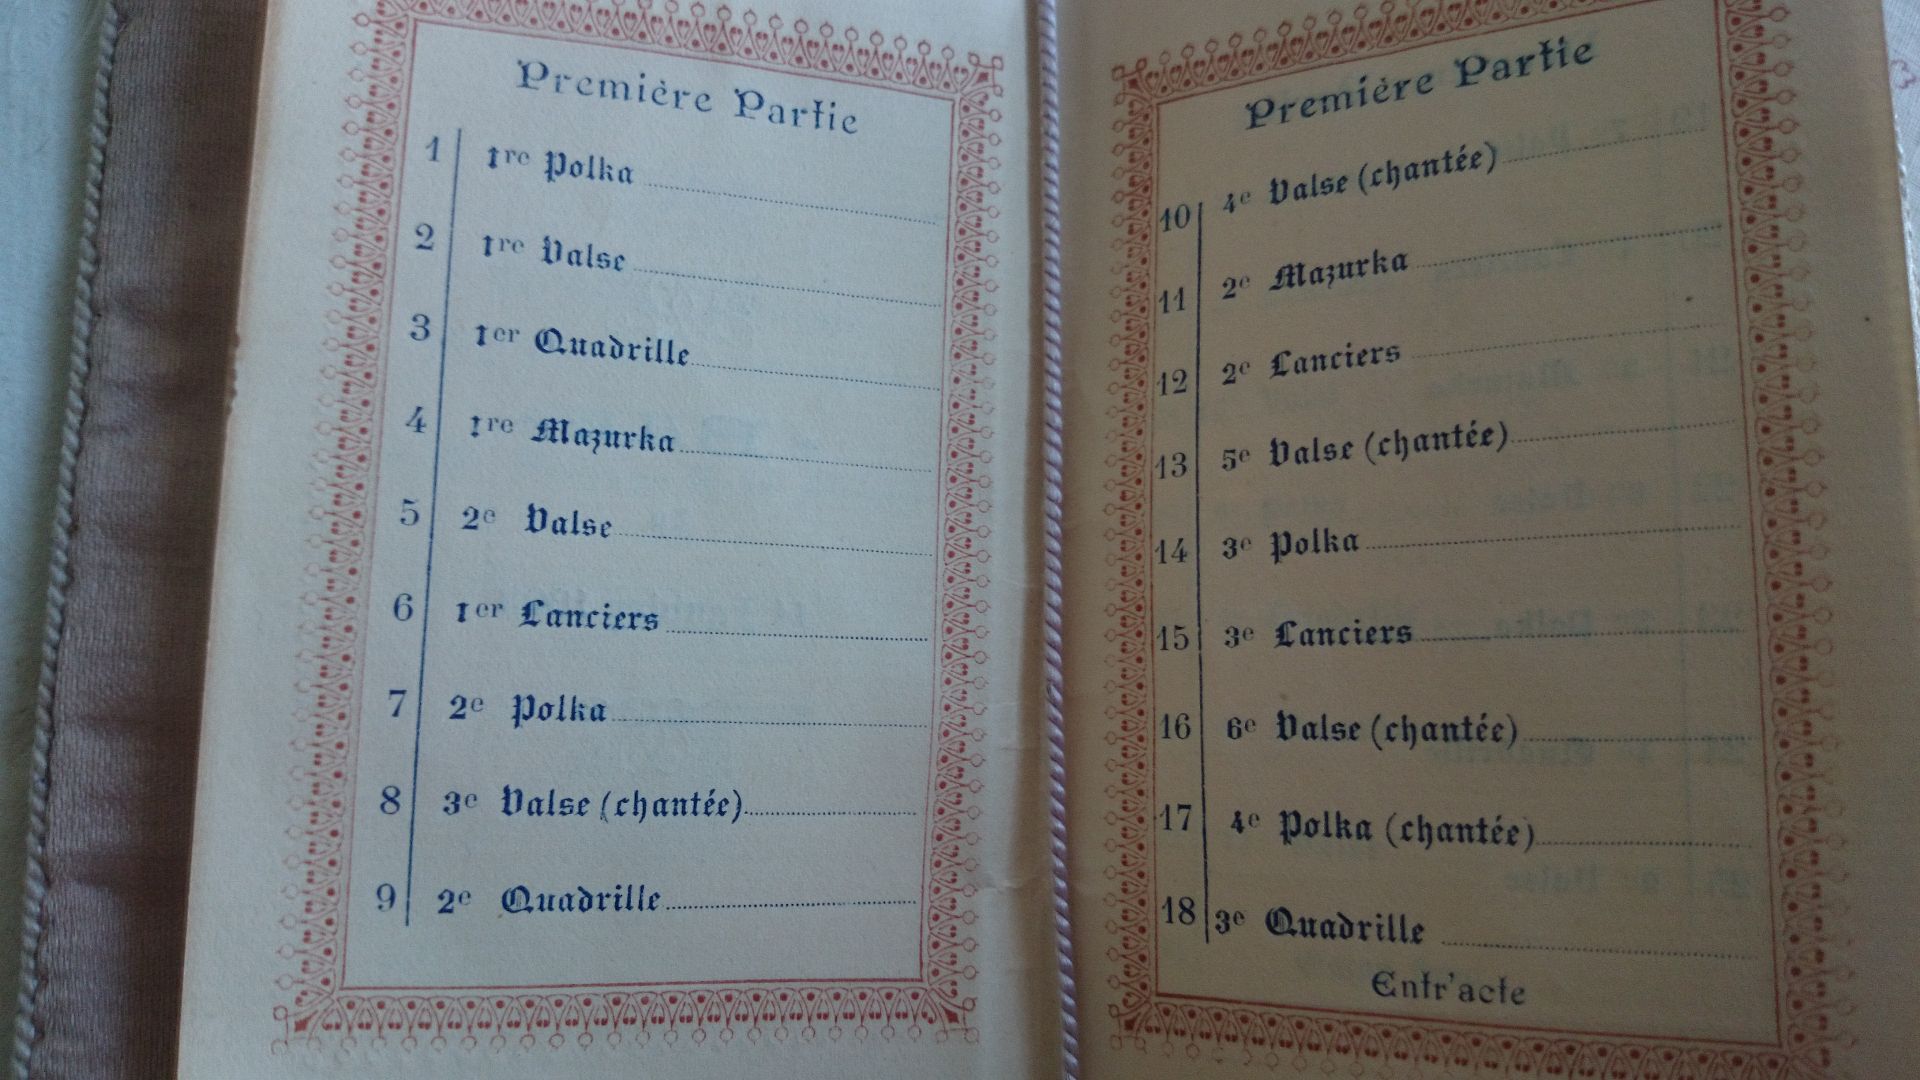 Première Partie
1 1re Polka
2 1re Valse
3 1er Quadrille
4 1re Mazurka
5 2e Valse
6 1er Lanciers
7 2e Polka
8 3e Valse (chantée)
9 2e Quadrille
Première Partie
10 4e Valse (chantée)
11 2e Mazurka
12 2e Lanciers
13 5e Valse (chantée)
14 3e Polka
15 3e Lanciers
16 6e Valse (chantée)
17 4e Polka (chantée)
18 3e Quadrille
Entr'acte